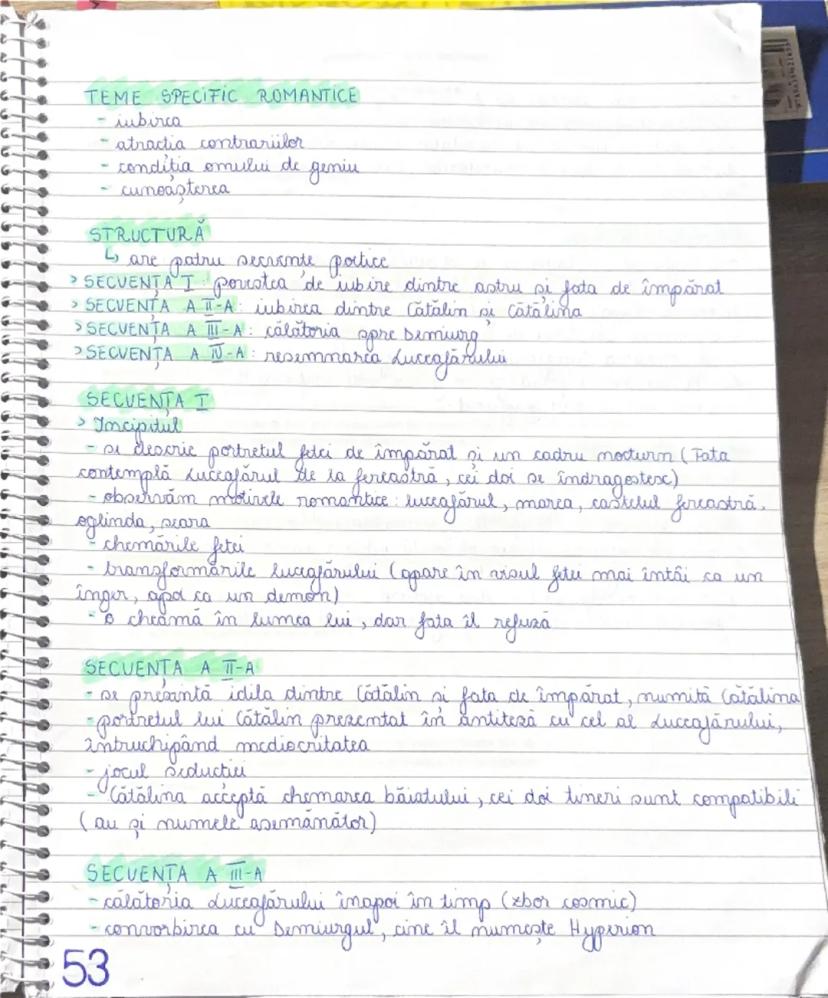 TEME SPECIFIC ROMANTICE
- iubirea
- atracția contrariilor
- condiția omului de geniu
- cunoașterea
STRUCTURĂ
↳ are patru secvențe poetice
> SECVENȚA I: povestea de iubire dintre astru și fata de împărat
> SECVENȚA A II-A: iubirea dintre Cătălin și Cătălina
> SECVENȚA A III-A: călătoria spre Demiurg
> SECVENȚA A IV-A: resemnarea Luceafărului
SECVENȚA I
> Incipitul
- se descrie portretul fetei de împărat și un cadru nocturn (Fata
contemplă Luceafărul de la fereastră, cei doi se îndragostesc)
- observăm motivele romantice: luceafărul, marea, castelul fereastră,
oglinda, seara
- chemările fetei
- transformările luceafărului (apare în visul fetei mai întâi ca un
înger, apoi ca un demon)
- o cheamă în lumea lui, dar fata îl refuză
SECVENȚA A II-A
- se prezintă idila dintre Cătălin și fata de împărat, numită Cătălina
- portretul lui Cătălin prezentat în antiteză cu cel al Luceafărului,
întruchipând mediocritatea
- jocul seducției
- Cătălina acceptă chemarea băiatului, cei doi tineri sunt compatibili
(au și numele asemănător)
SECVENȚA A III-A
- călătoria Luceafărului înapoi în timp (zbor cosmic)
- convorbirea cu Demiurgul, cine îl numește Hyperion
53